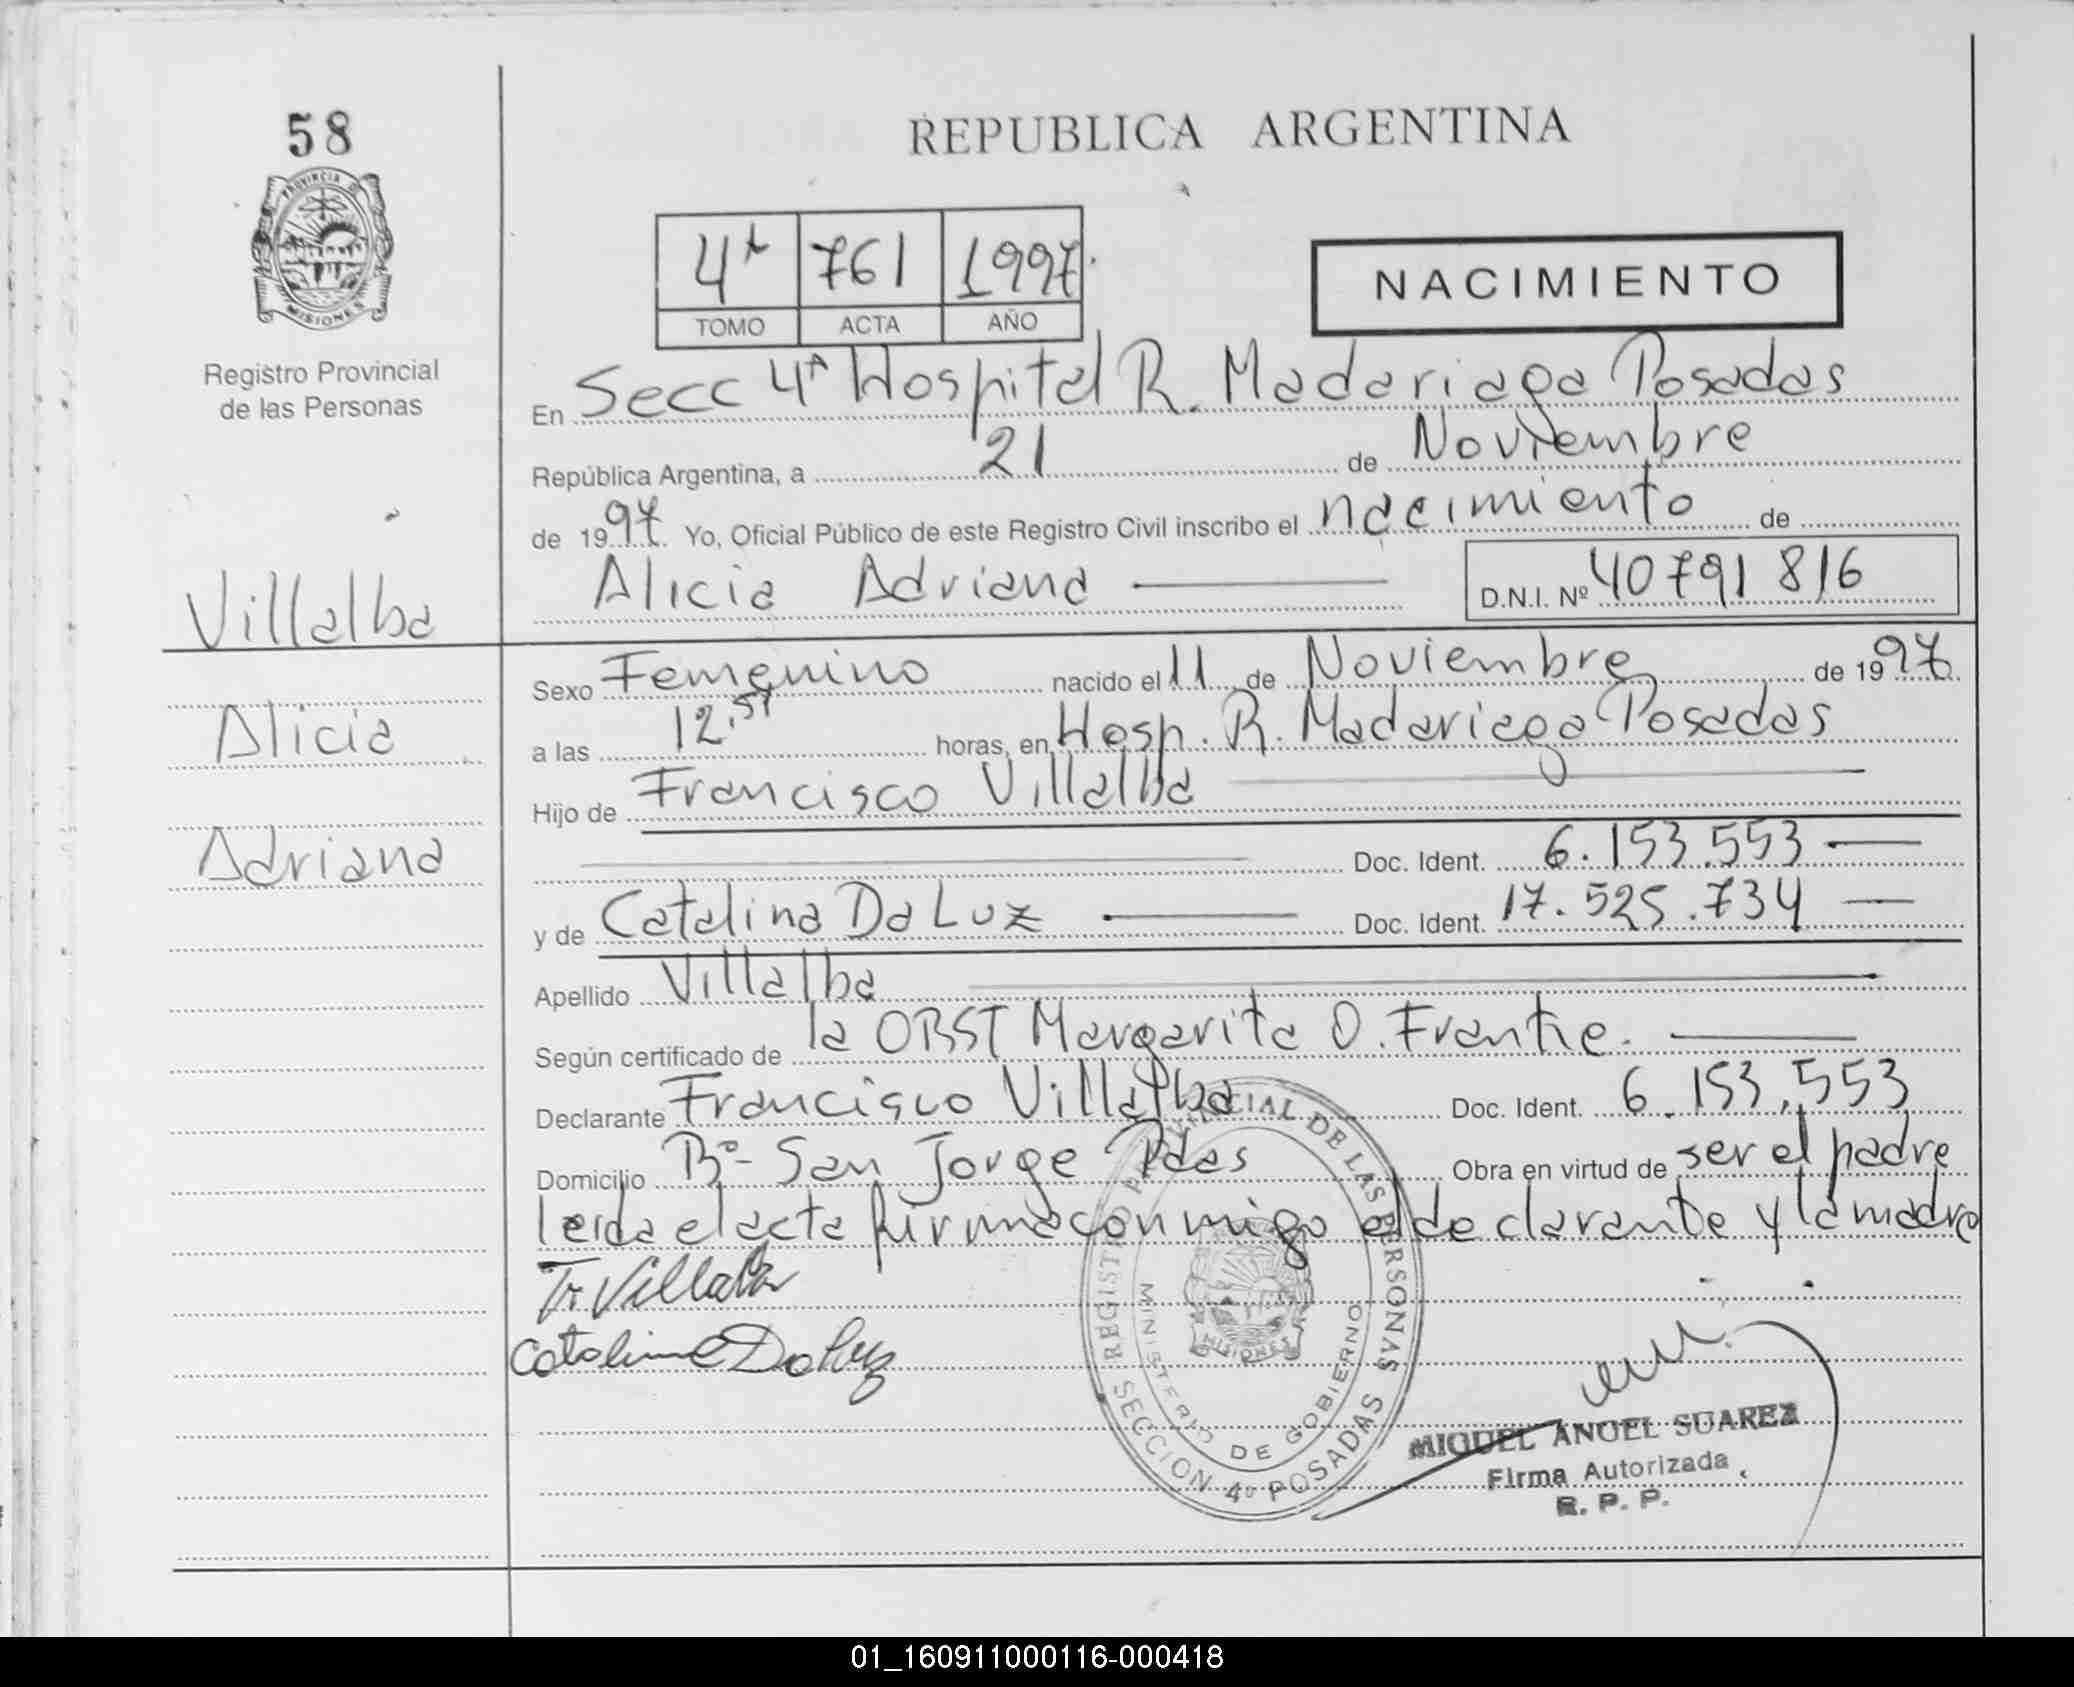 58
PROVINCIA D MISIONES
Registro Provincial
de las Personas
Villalba
Alicia
Adriana
REPUBLICA ARGENTINA
4ª 761 1997
TOMO ACTA AÑO
NACIMIENTO
En Secc 4ª Hospital R. Madariaga Posadas
República Argentina, a 21 de Noviembre
de 1997 Yo, Oficial Público de este Registro Civil inscribo el nacimiento de
Alicia Adriana
D.N.I. Nº 40791816
Sexo Femenino nacido el 11 de Noviembre de 1997
a las 12,51 horas, en Hosp. R. Madariaga Posadas
Hijo de Francisco Villalba
Doc. Ident. 6.153.553
y de Catalina Da Luz Doc. Ident. 17.525.734
Apellido Villalba
Según certificado de la OBST Margarita O. Frantze.
Declarante Francisco Villalba Doc. Ident. 6.153.553
Domicilio Bº- San Jorge Pdas Obra en virtud de ser el padre
leida el acta firma conmigo el declarante y la madre
F. Villalba
Catalina Da Luz
REGISTRO PROVINCIAL DE LAS PERSONAS
MINISTERIO DE GOBIERNO
MISIONES
SECCION 4º POSADAS
MIGUEL ANGEL SUAREZ
Firma Autorizada
R. P. P.
01_160911000116-000418